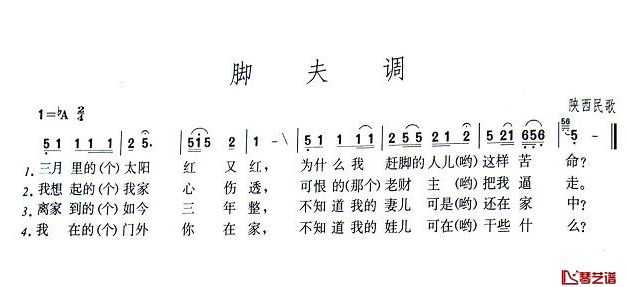 脚夫调
1=♭A 2/4
陕西民歌
5 1 1 1 1 | 2 5. | 5 1 5 2 | 1 - \ | 5 1 1 1 1 | 2 5 5 2 1 | 5 2 1 6 5 6 | 56 5 - ‖
1. 三月里的(个)太阳 红又红, 为什么我 赶脚的人儿(哟)这样苦 命?
2. 我想起的(个)我家 心伤透, 可恨的(那个)老财主(哟)把我逼 走。
3. 离家到的(个)如今 三年整, 不知道我的 妻儿可是(哟)还在家 中?
4. 我在的(个)门外 你在家, 不知道我的 娃儿可在(哟)干些什 么?
琴艺谱